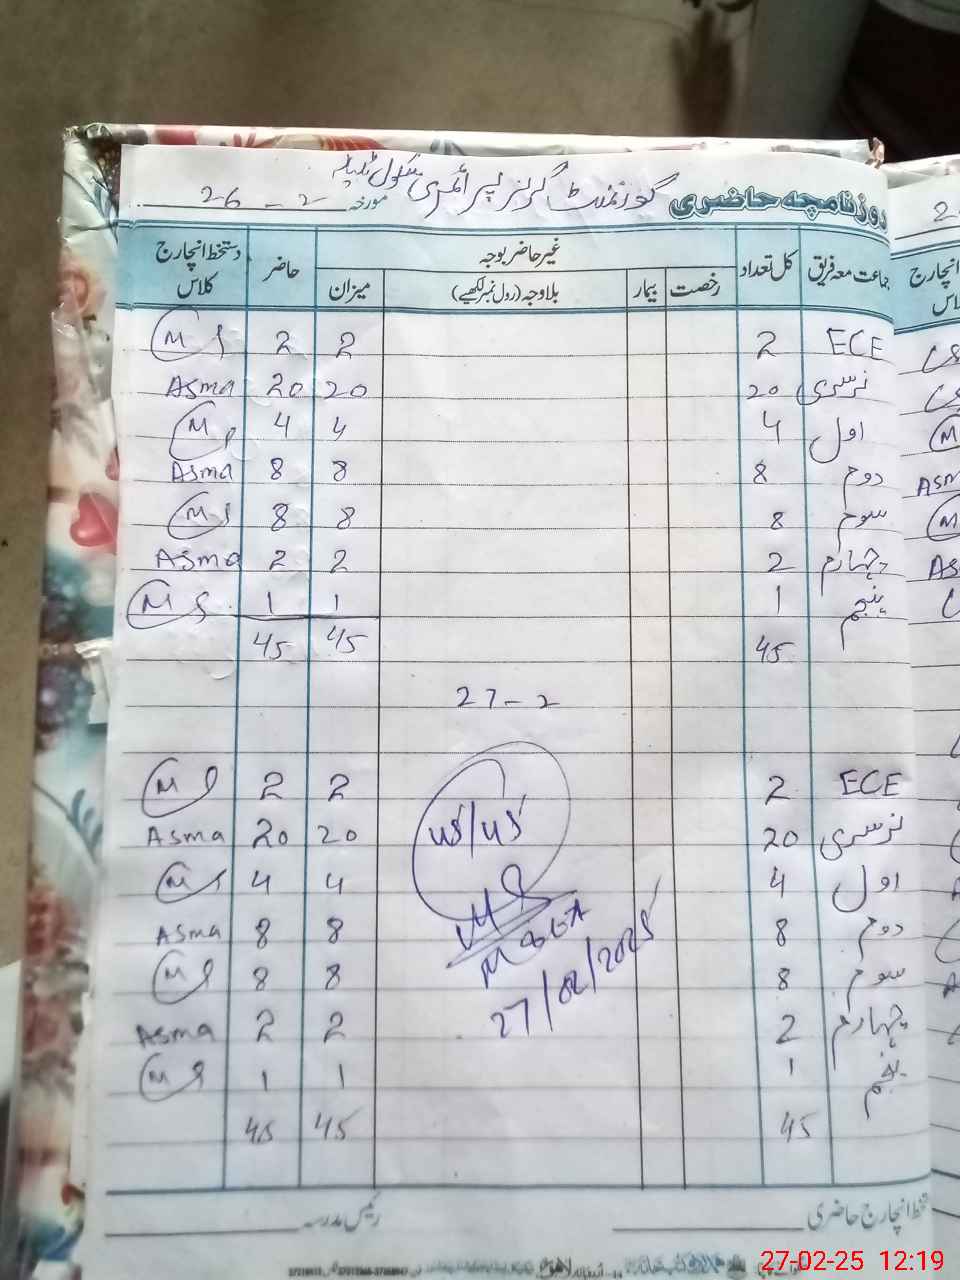 گورنمنٹ گرلز پرائمری سکول
روزنامچہ حاضری مورخہ 26-2
جماعت معہ فریق کل تعداد غیر حاضر بوجہ حاضر دستخط انچارج کلاس
رخصت بیمار بلاوجہ (رول نمبر لکھیے) میزان
ECE 2 2 2 M
نرسری 20 20 20 Asma
اول 4 4 4 M
دوم 8 8 8 Asma
سوم 8 8 8 M
چہارم 2 2 2 Asma
پنجم 1 1 1 M
45 45 45
27-2
ECE 2 2 2 M
نرسری 20 20 20 Asma
45/45
اول 4 4 4 M
دوم 8 8 8 Asma
سوم 8 8 8 M
27/02/2025
چہارم 2 2 2 Asma
پنجم 1 1 1 M
45 45 45
دستخط انچارج حاضری رئیس مدرسہ
27-02-25 12:19